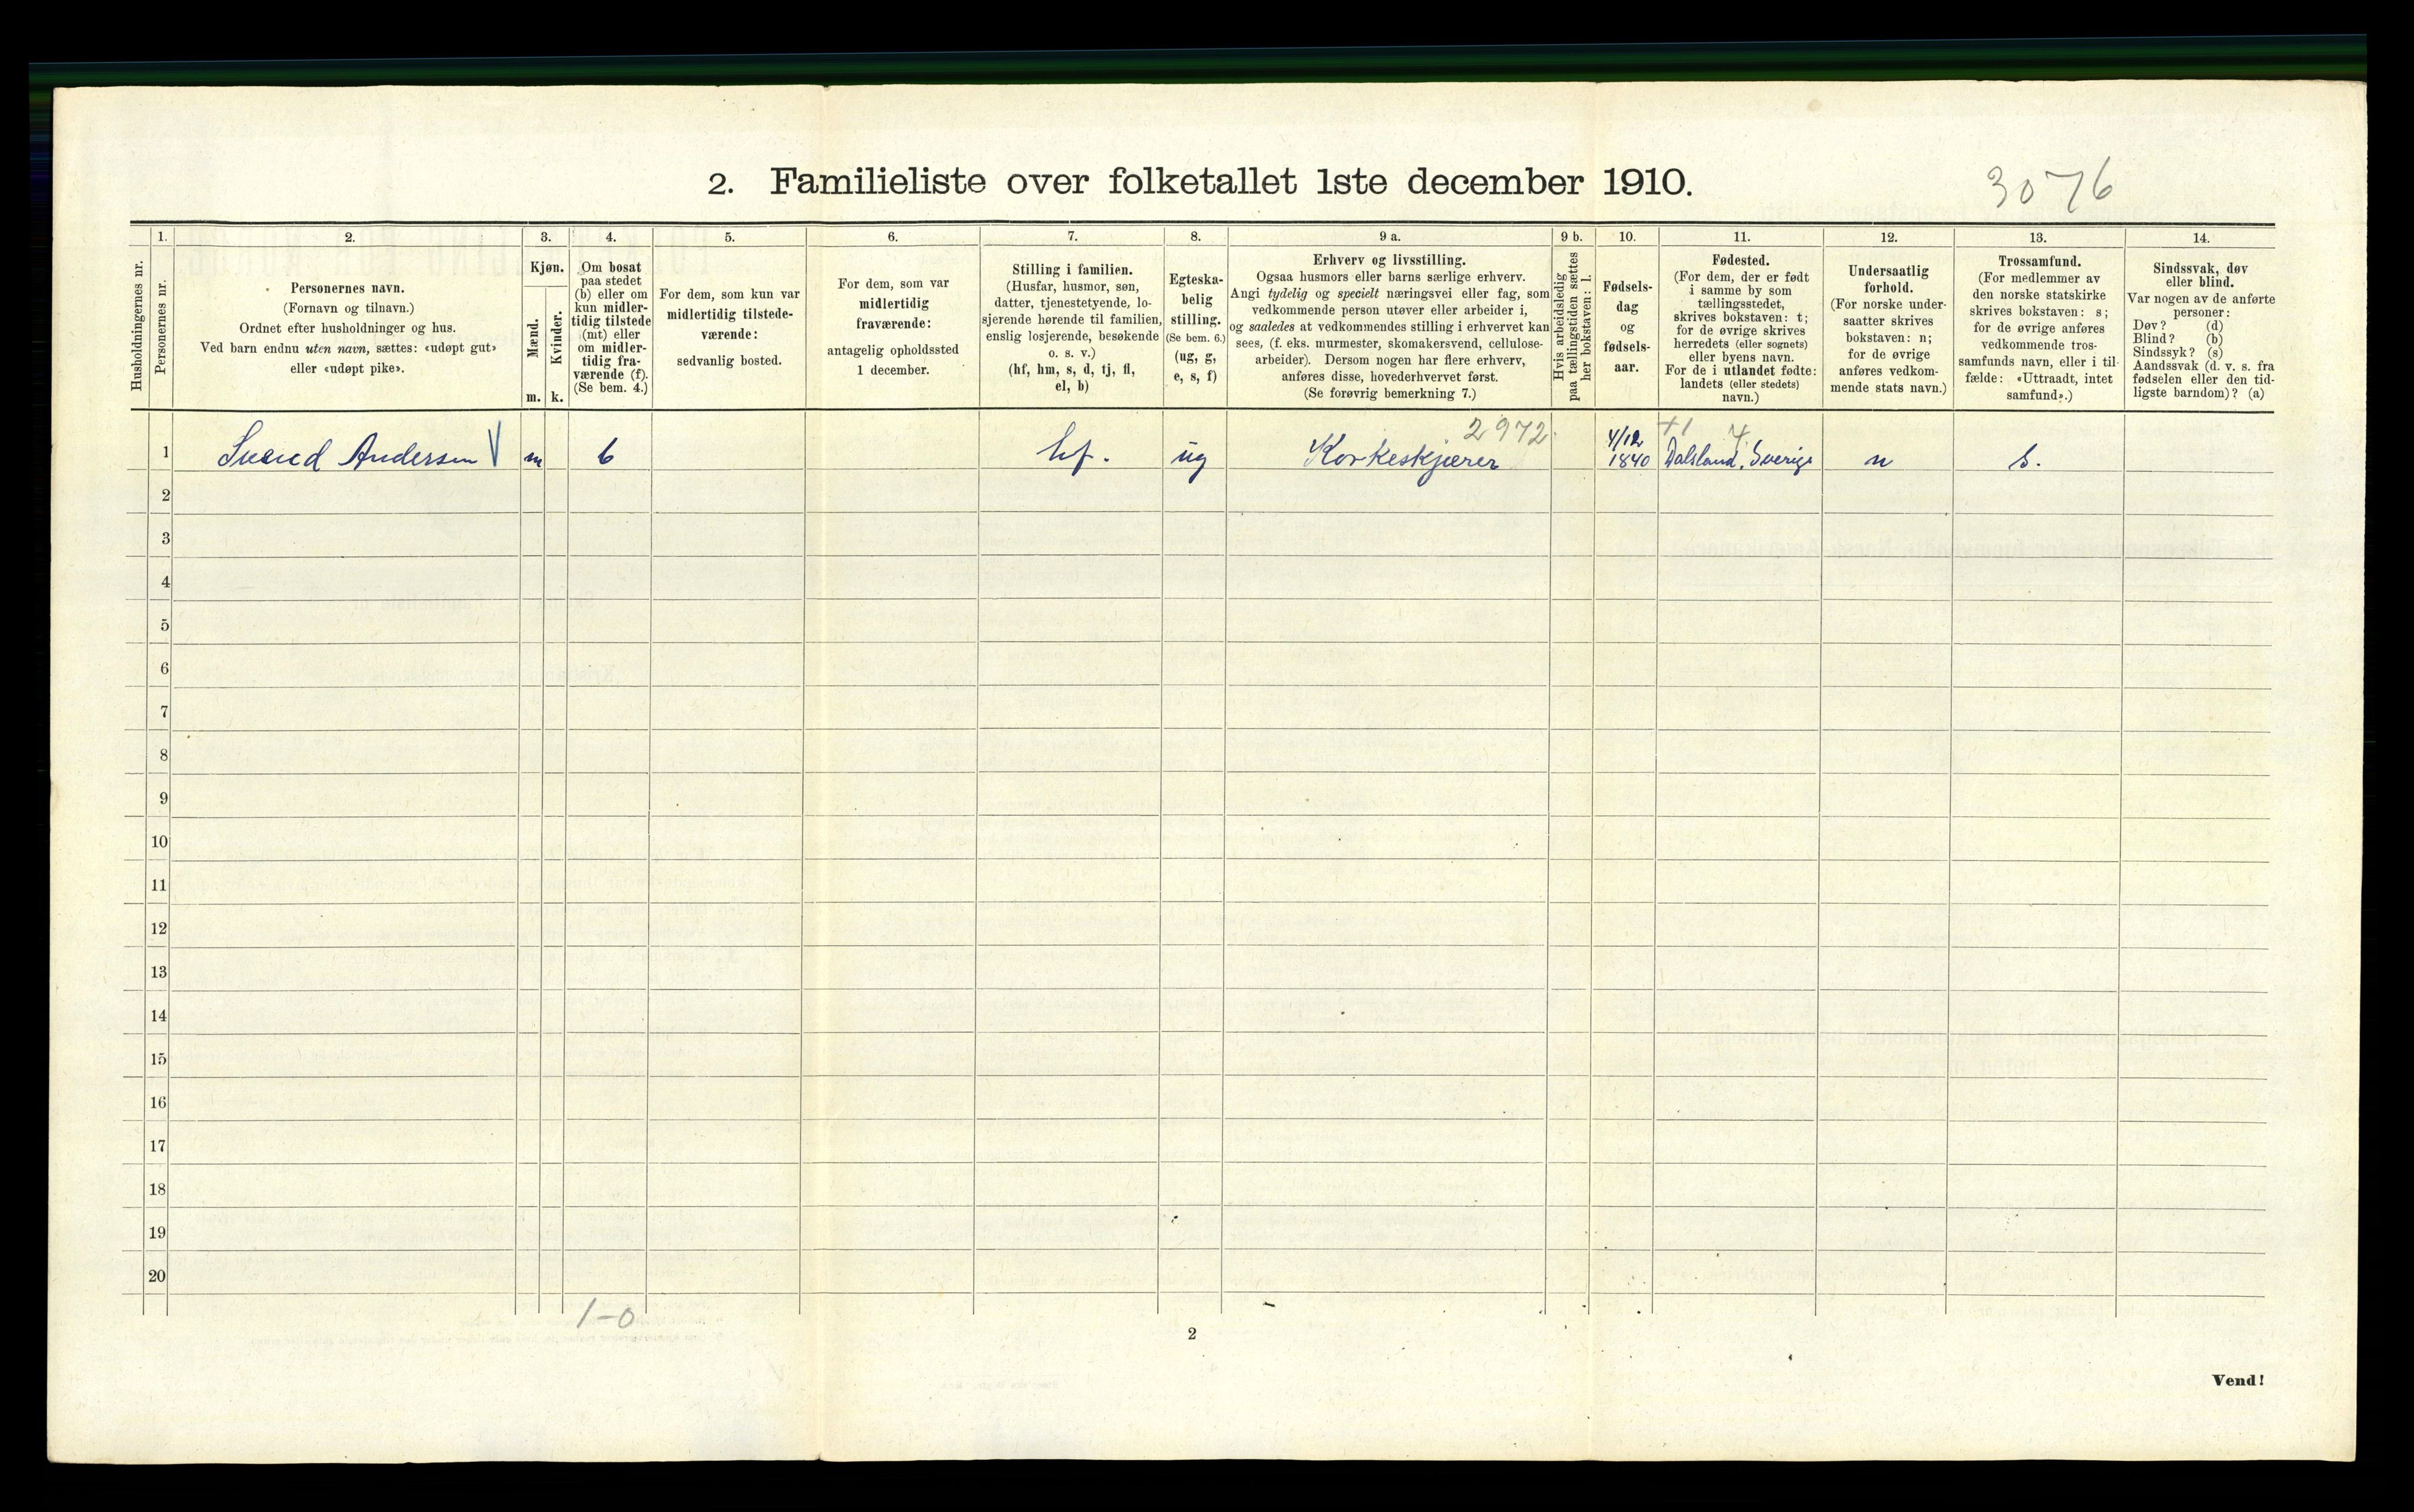 2. Familieliste over folketallet 1ste december 1910.
3076
1. 2. 3. 4. 5. 6. 7. 8. 9 a. 9 b. 10. 11. 12. 13. 14.
Husholdningernes nr.
Personernes nr.
Personernes navn.
(Fornavn og tilnavn.)
Ordnet efter husholdninger og hus.
Ved barn endnu uten navn, sættes: «udøpt gut»
eller «udøpt pike».
Kjøn.
Mænd.
Kvinder.
m. k.
Om bosat
paa stedet
(b) eller om
kun midler-
tidig tilstede
(mt) eller
om midler-
tidig fra-
værende (f).
(Se bem. 4.)
For dem, som kun var
midlertidig tilstede-
værende:
sedvanlig bosted.
For dem, som var
midlertidig
fraværende:
antagelig opholdssted
1 december.
Stilling i familien.
(Husfar, husmor, søn,
datter, tjenestetyende, lo-
sjerende hørende til familien,
enslig losjerende, besøkende
o. s. v.)
(hf, hm, s, d, tj, fl,
el, b)
Egteska-
belig
stilling.
(Se bem. 6.)
(ug, g,
e, s, f)
Erhverv og livsstilling.
Ogsaa husmors eller barns særlige erhverv.
Angi tydelig og specielt næringsvei eller fag, som
vedkommende person utøver eller arbeider i,
og saaledes at vedkommendes stilling i erhvervet kan
sees, (f. eks. murmester, skomakersvend, cellulose-
arbeider). Dersom nogen har flere erhverv,
anføres disse, hovederhvervet først.
(Se forøvrig bemerkning 7.)
Hvis arbeidsledig
paa tællingstiden sættes
her bokstaven: l.
Fødsels-
dag
og
fødsels-
aar.
Fødested.
(For dem, der er født
i samme by som
tællingsstedet,
skrives bokstaven: t;
for de øvrige skrives
herredets (eller sognets)
eller byens navn.
For de i utlandet fødte:
landets (eller stedets)
navn.)
Undersaatlig
forhold.
(For norske under-
saatter skrives
bokstaven: n;
for de øvrige
anføres vedkom-
mende stats navn.)
Trossamfund.
(For medlemmer av
den norske statskirke
skrives bokstaven: s;
for de øvrige anføres
vedkommende tros-
samfunds navn, eller i til-
fælde: «Uttraadt, intet
samfund».)
Sindssvak, døv
eller blind.
Var nogen av de anførte
personer:
Døv? (d)
Blind? (b)
Sindssyk? (s)
Aandssvak (d. v. s. fra
fødselen eller den tid-
ligste barndom)? (a)
2972. 4/12
1 Svend Andersen m b hf. ug Korkeskjærer 1840 Dalsland, Sverige n s.
2
3
4
5
6
7
8
9
10
11
12
13
14
15
16
17
18
19
20
1-0
2
Vend!